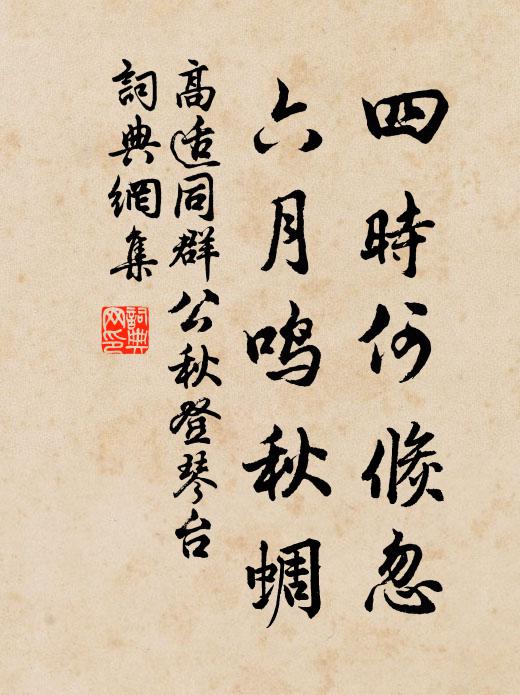 四時何倏忽
六月鳴秋蜩
高适同群公秋登琴台
詞典網集
詞典网印